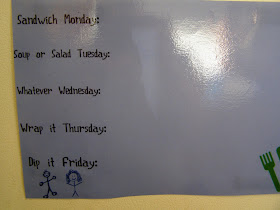 Sandwich Monday:
Soup or Salad Tuesday:
Whatever Wednesday:
Wrap it Thursday:
Dip it Friday: